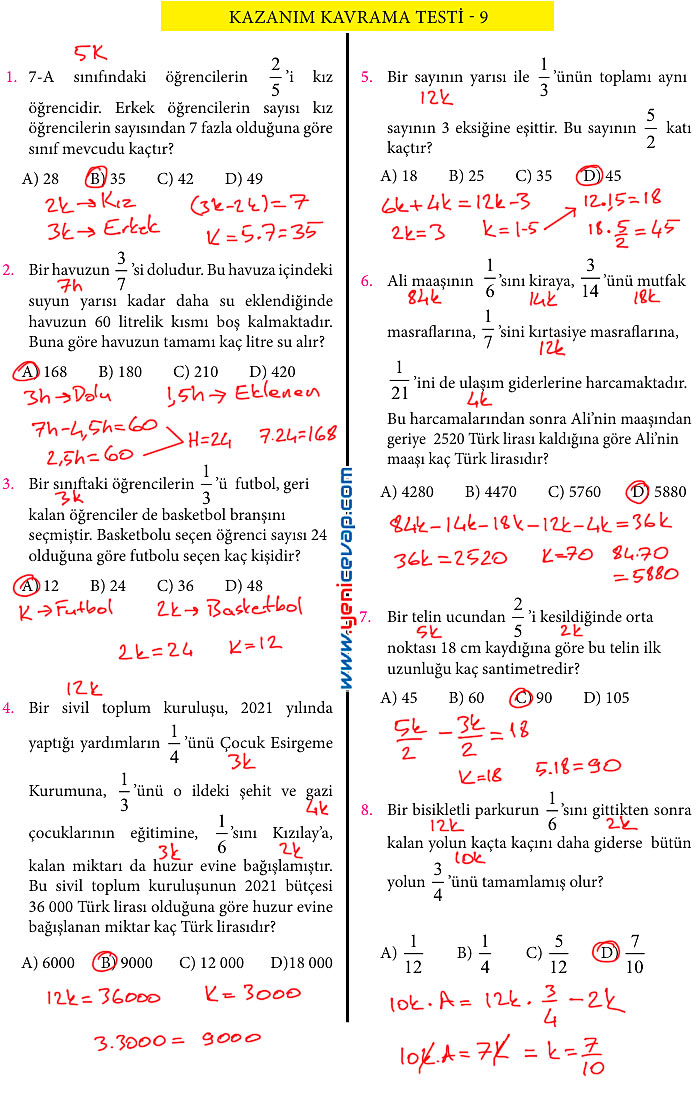 KAZANIM KAVRAMA TESTİ - 9
5K
1. 7-A sınıfındaki öğrencilerin 2/5 'i kız
öğrencidir. Erkek öğrencilerin sayısı kız
öğrencilerin sayısından 7 fazla olduğuna göre
sınıf mevcudu kaçtır?
A) 28 B) 35 C) 42 D) 49
2k → Kız (3k-2k) = 7
3k → Erkek K = 5.7 = 35
2. Bir havuzun 3/7 'si doludur. Bu havuza içindeki
7h
suyun yarısı kadar daha su eklendiğinde
havuzun 60 litrelik kısmı boş kalmaktadır.
Buna göre havuzun tamamı kaç litre su alır?
A) 168 B) 180 C) 210 D) 420
3h → Dolu 1,5h → Eklenen
7h-4,5h = 60
2,5h = 60 H = 24 7.24 = 168
3. Bir sınıftaki öğrencilerin 1/3 'ü futbol, geri
3k
kalan öğrenciler de basketbol branşını
seçmiştir. Basketbolu seçen öğrenci sayısı 24
olduğuna göre futbolu seçen kaç kişidir?
A) 12 B) 24 C) 36 D) 48
K → Futbol 2k → Basketbol
2k = 24 K = 12
12k
4. Bir sivil toplum kuruluşu, 2021 yılında
yaptığı yardımların 1/4 'ünü Çocuk Esirgeme
3k
Kurumuna, 1/3 'ünü o ildeki şehit ve gazi
4k
çocuklarının eğitimine, 1/6 'sını Kızılay'a,
3k 2k
kalan miktarı da huzur evine bağışlamıştır.
Bu sivil toplum kuruluşunun 2021 bütçesi
36 000 Türk lirası olduğuna göre huzur evine
bağışlanan miktar kaç Türk lirasıdır?
A) 6000 B) 9000 C) 12 000 D)18 000
12k = 36000 K = 3000
3.3000 = 9000
www.yenicevap.com
5. Bir sayının yarısı ile 1/3 'ünün toplamı aynı
12k
sayının 3 eksiğine eşittir. Bu sayının 5/2 katı
kaçtır?
A) 18 B) 25 C) 35 D) 45
6k + 4k = 12k - 3 12.1,5 = 18
2k = 3 k = 1-5 18.5/2 = 45
6. Ali maaşının 1/6 'sını kiraya, 3/14 'ünü mutfak
84k 14k 18k
masraflarına, 1/7 'sini kırtasiye masraflarına,
12k
1/21 'ini de ulaşım giderlerine harcamaktadır.
4k
Bu harcamalarından sonra Ali'nin maaşından
geriye 2520 Türk lirası kaldığına göre Ali'nin
maaşı kaç Türk lirasıdır?
A) 4280 B) 4470 C) 5760 D) 5880
84k-14k-18k-12k-4k = 36k
36k = 2520 K = 70 84.70
= 5880
7. Bir telin ucundan 2/5 'i kesildiğinde orta
5k 2k
noktası 18 cm kaydığına göre bu telin ilk
uzunluğu kaç santimetredir?
A) 45 B) 60 C) 90 D) 105
5k/2 - 3k/2 = 18
K = 18 5.18 = 90
8. Bir bisikletli parkurun 1/6 'sını gittikten sonra
12k 2k
kalan yolun kaçta kaçını daha giderse bütün
10k
yolun 3/4 'ünü tamamlamış olur?
A) 1/12 B) 1/4 C) 5/12 D) 7/10
10k . A = 12k . 3/4 - 2k
10k.A = 7k = k = 7/10